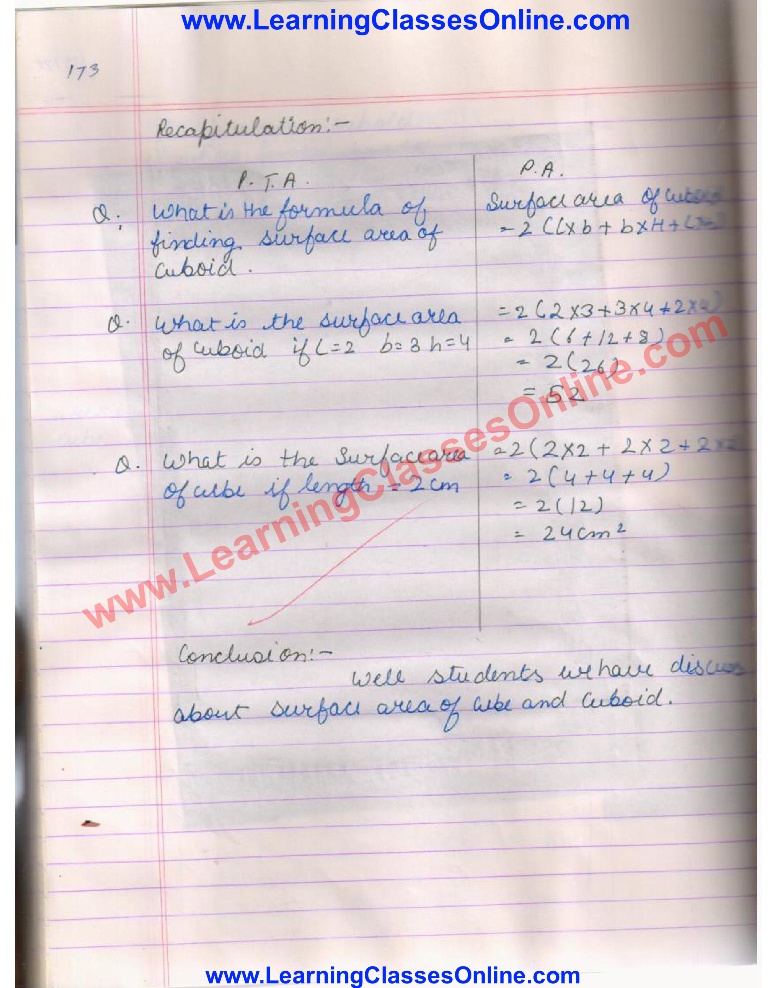 www.LearningClassesOnline.com
173
Recapitulation:-
P.T.A.
P.A.
Q. What is the formula of
finding surface area of
cuboid.
Surface area of cuboid
= 2(L×b + b×H + L×
Q. What is the surface area
of cuboid if L=2 b=3 h=4
= 2(2×3+3×4+2×4)
= 2(6+12+8)
= 2(26)
= 52
Q. What is the Surface area
of cube if length = 2cm
= 2(2×2 + 2×2 + 2×2
= 2(4+4+4)
= 2(12)
= 24cm²
www.LearningClassesOnline.com
Conclusion:-
Well students we have discuss
about surface area of cube and cuboid.
www.LearningClassesOnline.com